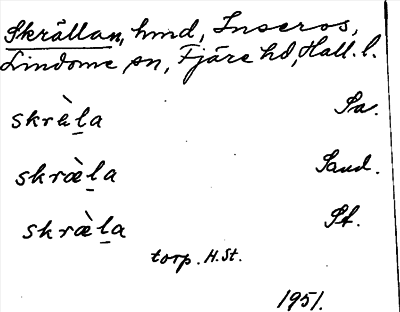 Skrällan, hmd, Inseros,
Lindome sn, Fjäre hd, Hall. l.
skræ̀l̠a Sa.
skræ̀l̠a Sand.
skræ̀l̠a St.
torp. H. St.
1951.